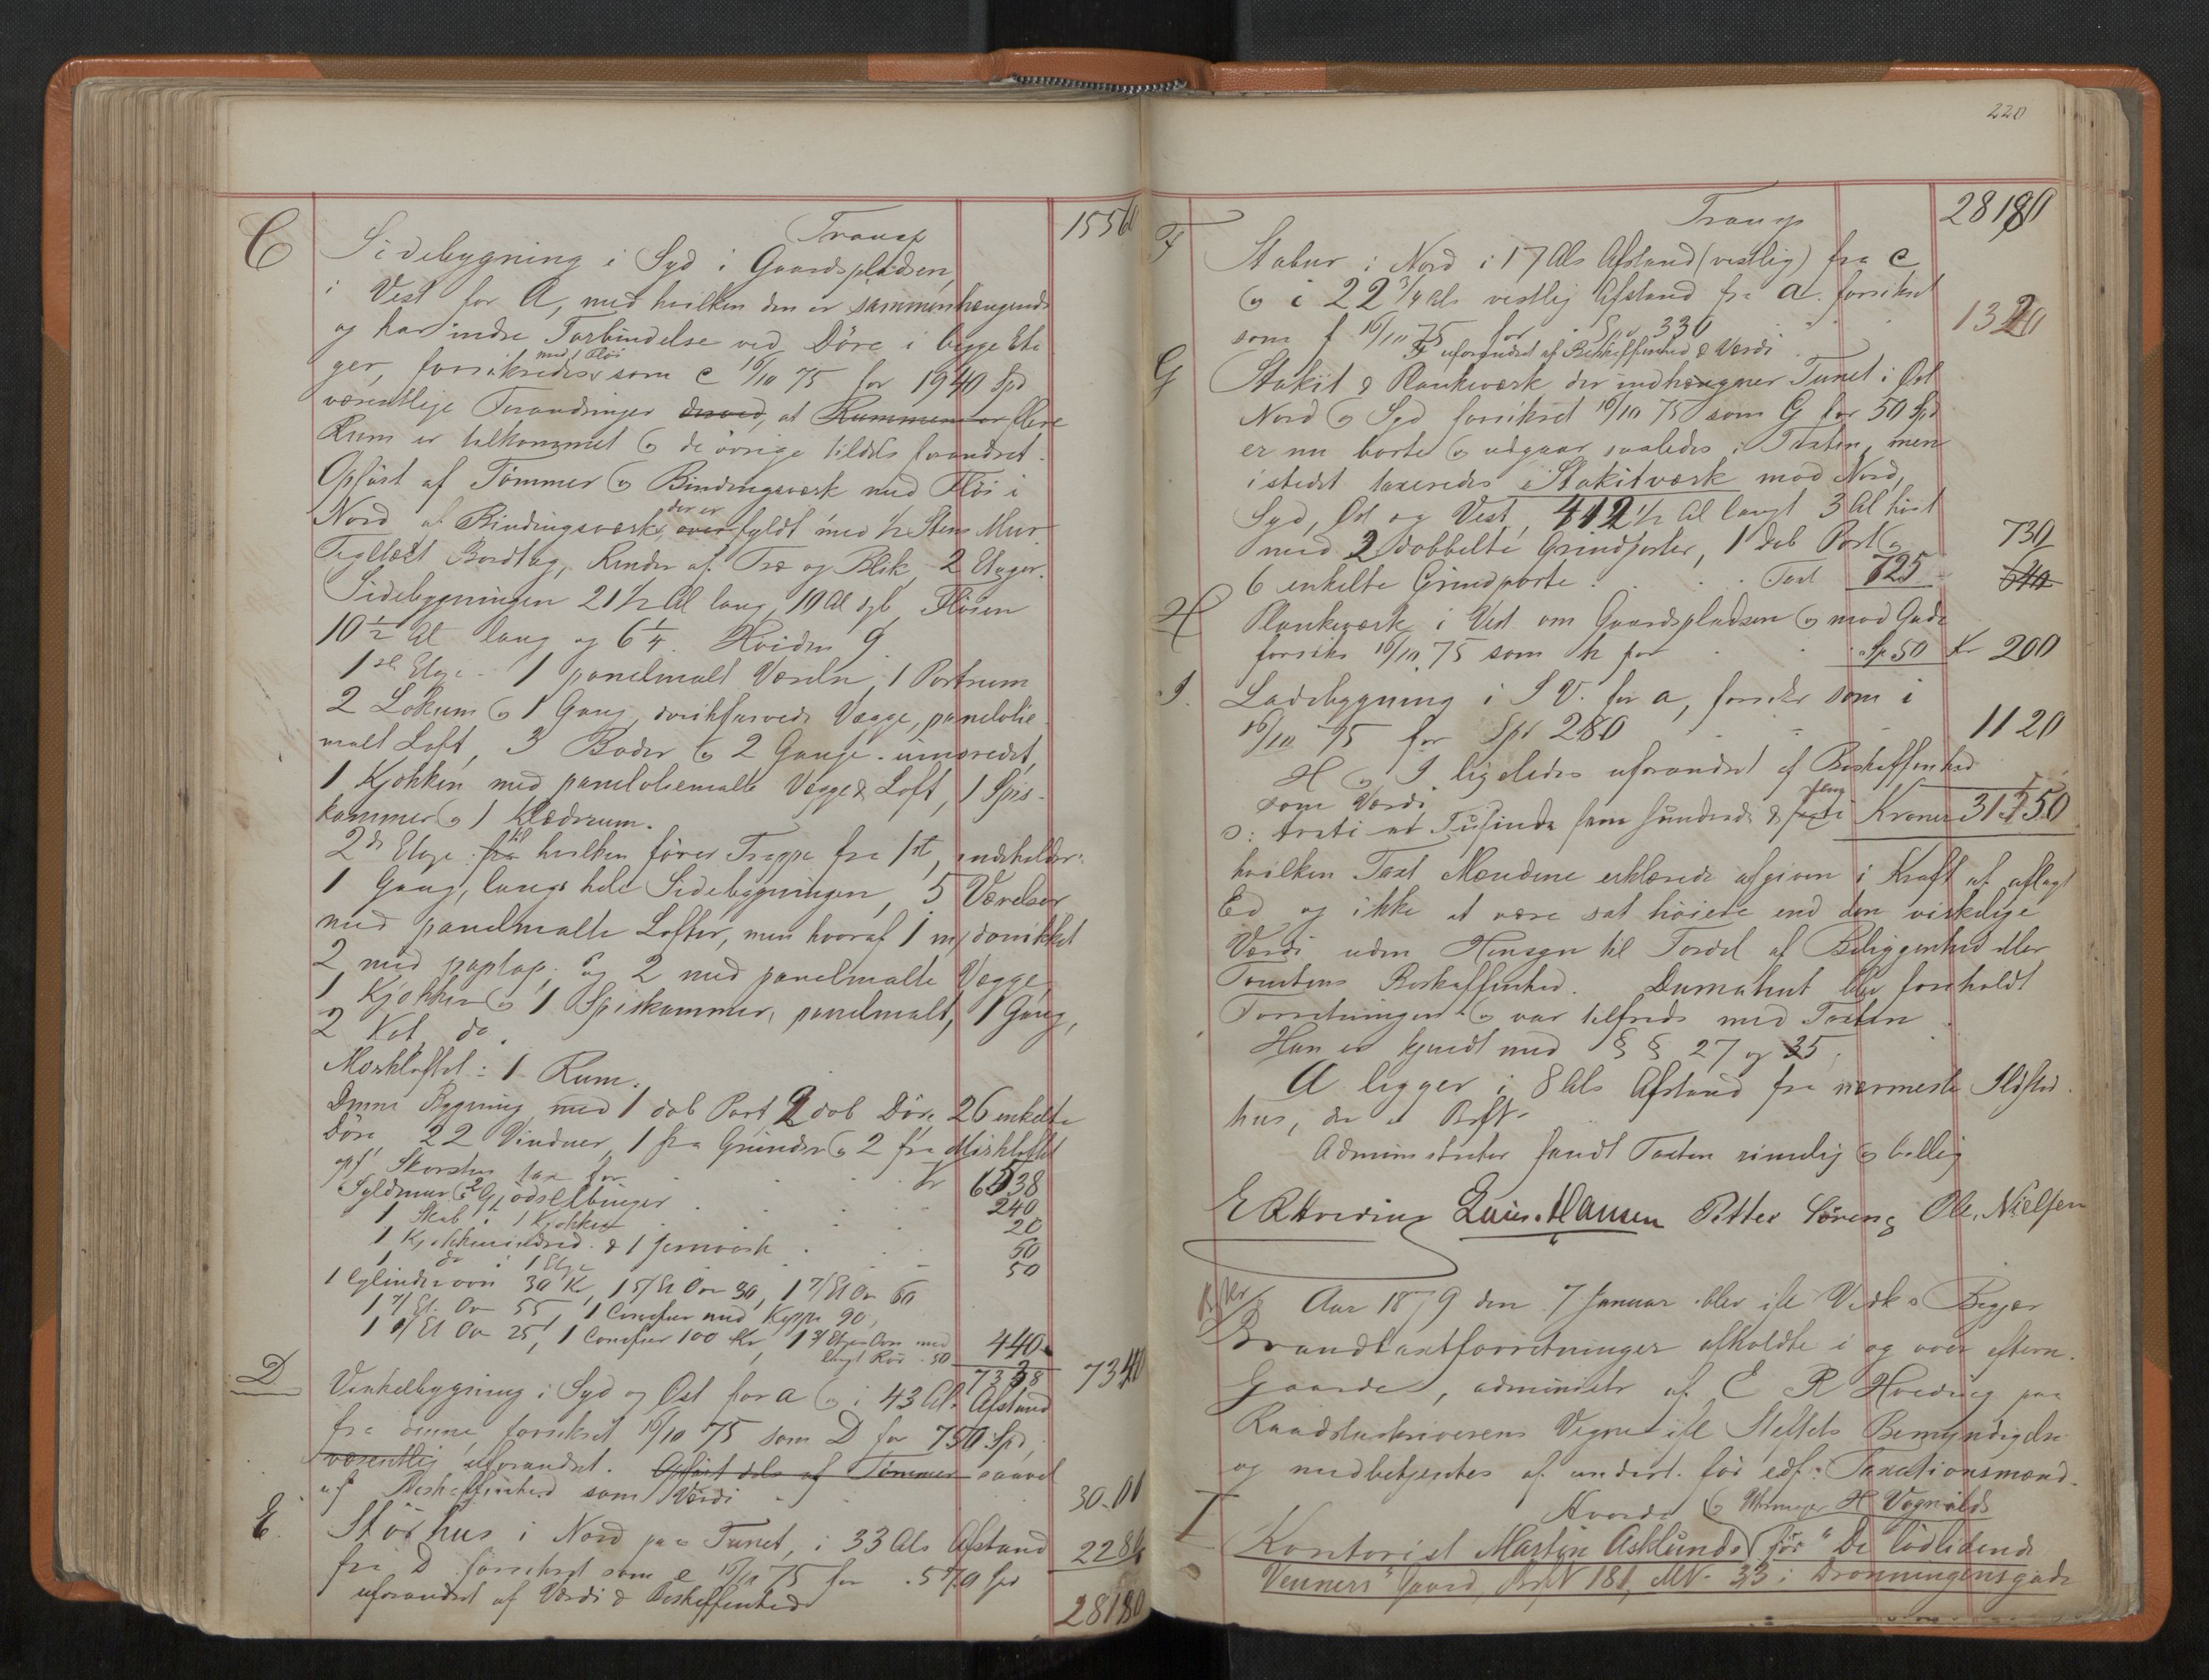 Transp 15560
C Sidebygning i Syd i Gaardspladsen,
i Vest for A, med hvilken den er sammenhængende
og har indre Forbindelse ved Döre i begge Eta
ger, forsikredes med Flöi som C 16/10 75 for 1940 Spd
væsentlige Forandringer derved, at Rummene er flere
Rum er tilkommet og de övrige tildels forandret.
Opfört af Tömmer og Bindingsværk med Flöi i
Nord af Bindingsværk, der er over fyldt med ½ Stens Mur
Tegltækt Bordtag, Render af Træ og Blik, 2 Etager.
Sidebygningen 21½ Al lang, 10 Al dyb, Flöien
10½ Al lang og 6¼. Höiden 9
1ste Etage. 1 panelmalt Værelse, 1 Portrum
2 Lokum og 1 Gang, farvede Vægge, panelolie
malt Loft, 3 Boder og 2 Gange uinnredet,
1 Kjökken med paneloliemalte Vægge & Loft, 1 Spis-
kammer og 1 Klædrum.
2de Etage fra til hvilken förer Trappe fra 1ste, indeholder:
1 Gang, langs hele Sidebygningen, 5 Værelser
med panelmalte Lofter, men hvoraf 1 m/
2 med paptap. og 2 med panelmalte Vægge
1 Kjökken og 1 Spiskammer, panelmalt, 1 Gang,
2 Kot do.
Mörkloftet: 1 Rum.
Denne Bygning med 1 dob Port, 2 dob Döre, 26 enkelte
Döre 22 Vinduer, 1 fra Grunden og 2 fra Mörkloftet
opf. Skorsten tax for Kr 6538
Syldmur & 2 Gjödselbinger 240
1 Skab i 1 Kjökken 20
1 Kjökkenindred. & 1 Jernvask 50
1 do i 1 Etge 50
1 Cylinderovn 30 Kr, 1 5/Et Ovn 30, 1 7/Et Ovn 60
1 7/Et. Ovn 55, 1 Comfur med Kappe 90,
1 /Et Ovn 25, 1 Comfur 100 Kr, 1 3/Etges Ovn med
langt Rör 50 440
7338 7340
D Vinkelbygning i Syd og Öst for a og i 43 Al. Afstand
fra denne, forsikret 16/10 75 som D for 750 Spd,
væsentlig uforandret. Opfört dels af Tömmer saavel
af Beskaffenhed som Værdi 3000
E. Störhus i Nord paa Tunet, i 33 Als Afstand
fra D forsikret som e 16/10 75 for 570 Spd 2280
uforandret af Værdi & Beskaffenhed
28180
220
Transp 28180
F Stabur i Nord i 17 Als Afstand (vestlig) fra C
og i 22 3/4 Als vestlig Afstand fra a. forsikret
som f 16/10 75 for Spd 330 1320
F uforandret af Beskaffenhed & Værdi
G Stakit & Plankeværk der indhængner Tunet i Öst
Nord og Syd forsikret 16/10 75 som G for 50 Spd
er nu borte og udgaar saaledes i Taxten, men
istedet taxeredes Stakitværk mod Nord,
Syd, Öst og Vest, 412½ Al langt 3 Al höit
med 2 dobbelte Grindporte, 1 dob Port og 730
6 enkelte Grindporte. Taxt 725 640
H Plankeværk i Vest om Gaardspladsen og mod Gade
forsikr 16/10 75 som h for Sp 50 Kr 200
I. Ladebygning i S V. for a, forsikr som i
16/10 75 for Spd 280 1120
H og I ligeledes uforandret af Beskaffenhed
som Værdi
Kroner 31550
ɔ: treti et Tusinde fem Hundrede &
hvilken Taxt Mændene erklærede afgiven i Kraft af aflagt
Ed og ikke at være sat höiere end den virkelige
Værdi uden Hensyn til Fordel af Beliggenhed eller
Tomtens Beskaffenhed. Damahut blev foreholdt
Forretningen og var tilfreds med Taxten.
Han er kjendt med § § 27 og 35.
A ligger i 8 Als Afstand fra nærmeste Ildsted-
hus, der er
Administrator fandt Taxten rimelig og billig
E R Hvoding Laur. Hansen Petter Söreng Ole Nielsen
Aar 1879 den 7 Januar blev ifl Vedk.s Begjær
Brandtaxtforretninger afholdte i og over eftern.
Gaarde, administr af E R Hveding paa
Raadstuskriverens Vegne ifl Stiftets Bemyndigelse
og medbetjentes af undert. för edf. Taxationsmænd.
Hvorda og Uhrmager H Vognilds
I Kontorist Martin Asklunds för "De lidende
Venners" Gaard, BrN 181, MN. 33 i Dronningensgade